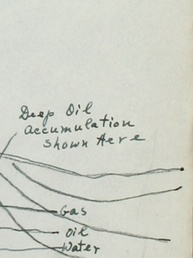 Deep Oil
accumulation
shown Here
Gas
Oil
Water